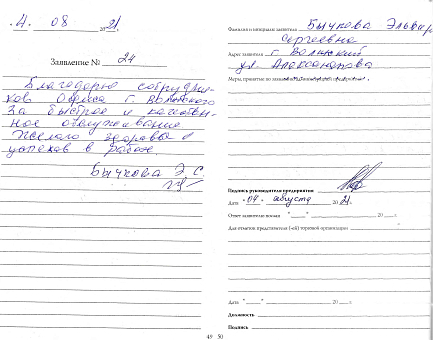 .4. 08 2021.
Заявление № 24
Благодарю сотрудни-
ков Офиса г. Волжского
За быстрое и качествен-
ное обслуживание
Желаю здоровья и
успехов в работе.
Бычкова Э. С.
Фамилия и инициалы заявителя Бычкова Эльвира
Сергеевна
Адрес заявителя г Волжский
ул. Александрова
Меры, принятые по заявлению
Подпись руководителя предприятия
Дата "04" августа 20 21.
Ответ заявителю послан "___" ______ 20 г.
Для отметок представителя (-ей) торговой организации
Дата "___" ______ 20 г.
Должность
Подпись
49 50